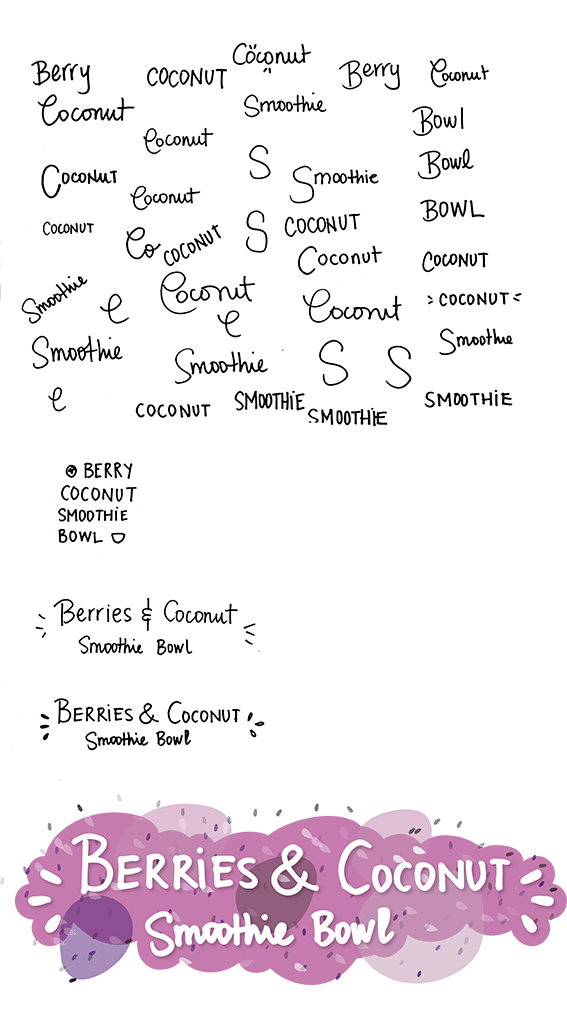 Coconut
Berry COCONUT Berry Coconut
Coconut Smoothie Bowl
Coconut
S Bowl
COCONUT Smoothie
Coconut BOWL
COCONUT Co COCONUT S COCONUT
Coconut COCONUT
Smoothie e Coconut Coconut COCONUT
e
Smoothie Smoothie S S Smoothie
e COCONUT SMOOTHIE SMOOTHIE SMOOTHIE
BERRY
COCONUT
SMOOTHIE
BOWL
Berries & Coconut
Smoothie Bowl
BERRIES & COCONUT
Smoothie Bowl
BERRIES & COCONUT
Smoothie Bowl